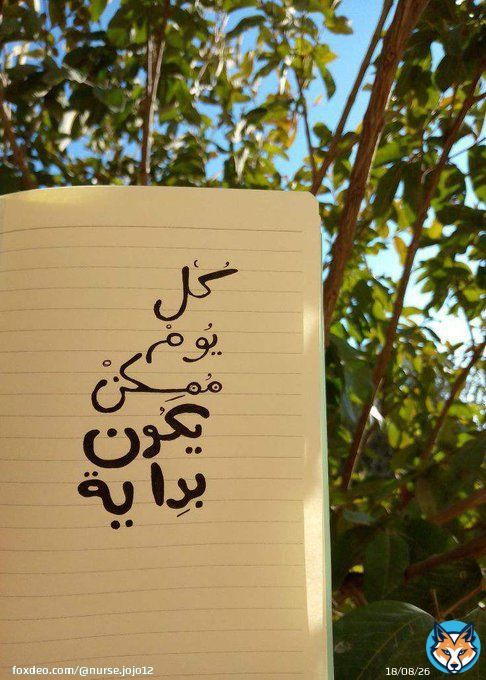 كُل
يُومْ
مُمِكنْ
يكُون
بدِاية
foxdeo.com/@nurse.jojo12
18/08/26